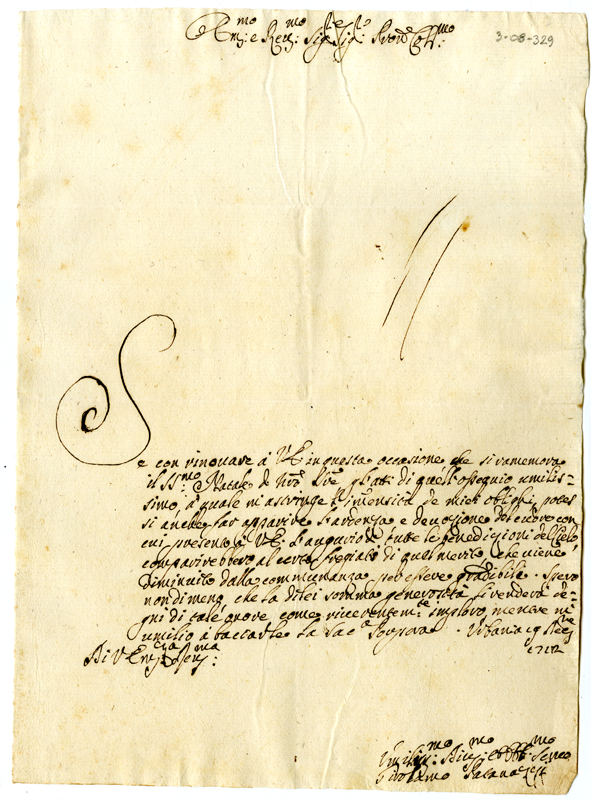 Em.mo e Rev.mo Sig.re Sig.r P.rone Coll.mo
3-08-329
Se con rinouare à V.E. in questa occasione che si ramemora
il SS.mo Natale di N.ro Sig.re gl'atti di quell'ossequio umilis-
simo, à quale m'astringe l'immensità de miei oblighi, potes
si anche far apparire l'ardenza e deuozione del cuore con
cui presento à V.E. l'augurio di tutte le benedizioni del Cielo
comparirebbero al certo fregiati di quel merito che viene
diminuito dalla communanza per essere gradibile. Spero
nondimeno che la di lei somma generosità li renderà de-
gni di tale, qnove come riverentem.te imploro, mentre m'
umilio à baciarle la Sac.a Porpora. Urbania 19 Xbre
1712
Di V. Em.za Rev.ma
Umiliss.mo Diuot.mo et Obb.mo Ser.re
Girolamo